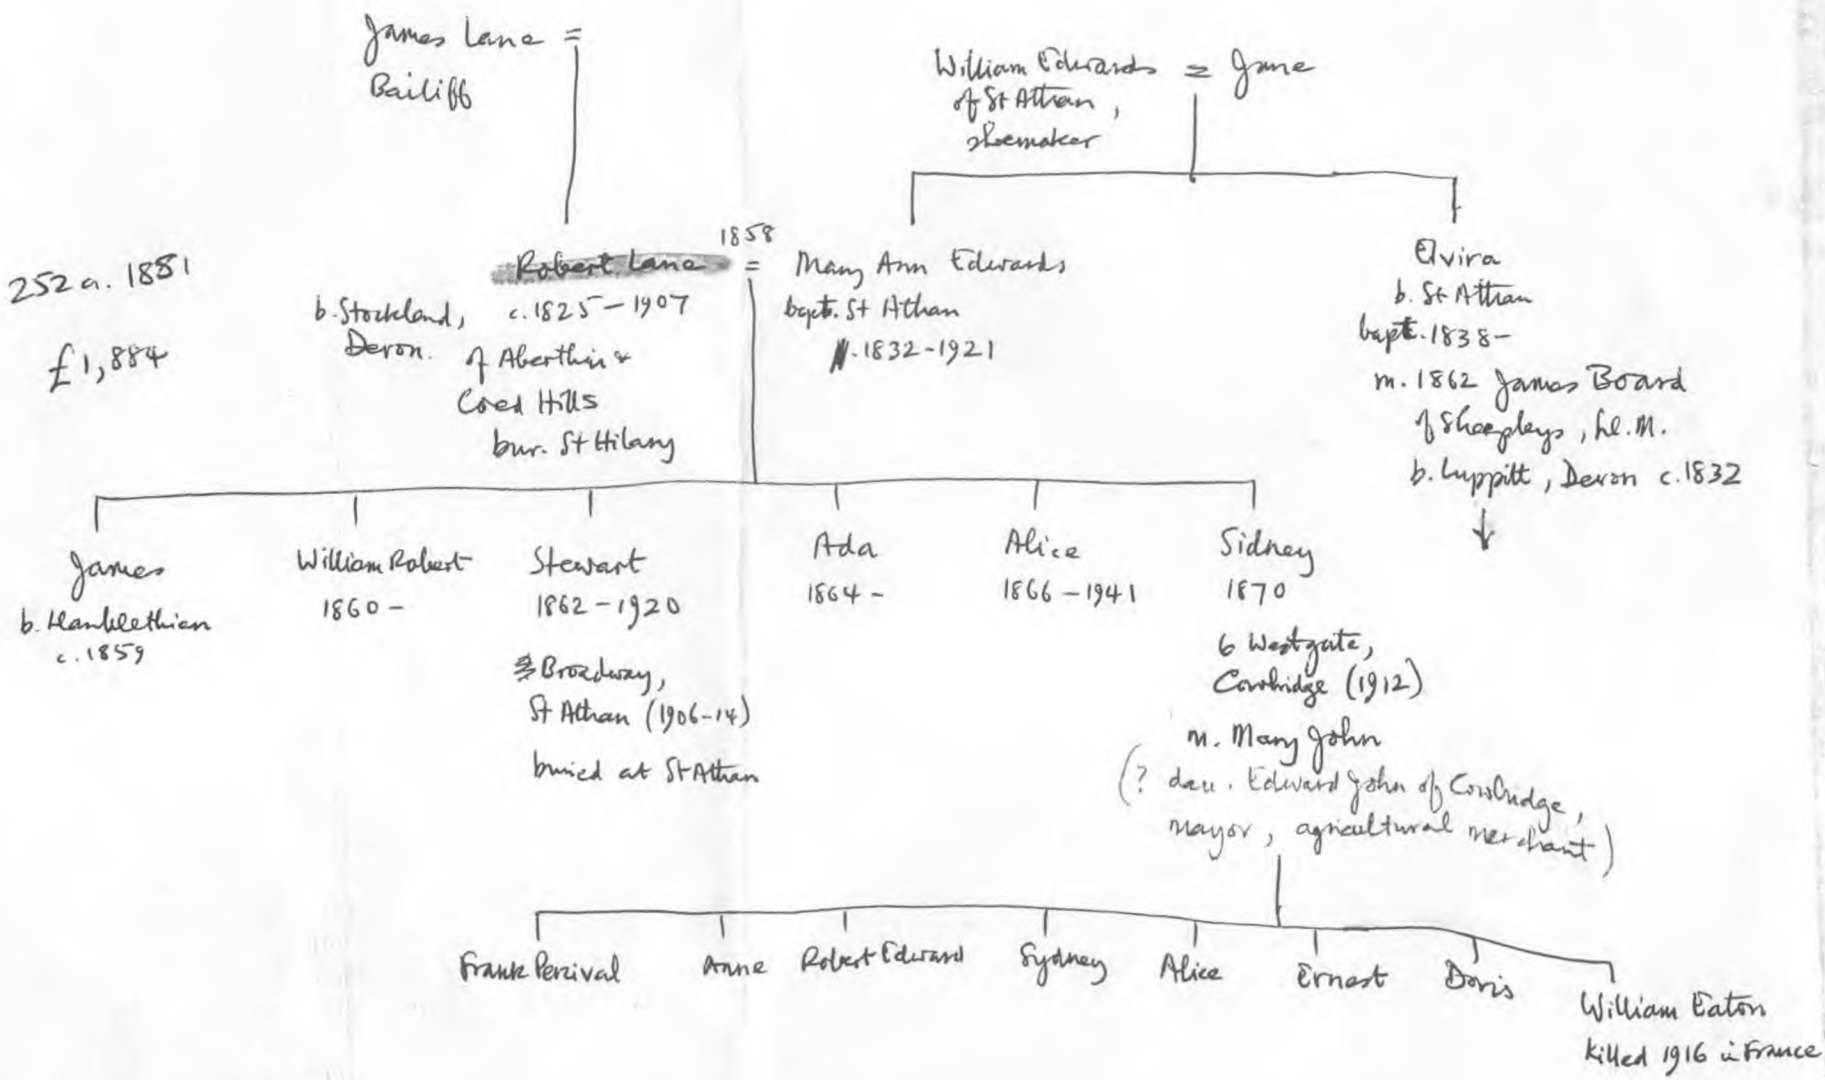 James Lane =
Bailiff
William Edwards = Jane
of St Athan,
shoemaker
252a. 1881
£1,884
1858
Robert Lane = Mary Ann Edwards
b. Stockland,
Devon.
c. 1825 - 1907
of Aberthin &
Coed Hills
bur. St Hilary
bapt. St Athan
1832-1921
Elvira
b. St Athan
bapt. 1838-
m. 1862 James Board
of Sheepleys, Ll. M.
b. Luppitt, Devon c. 1832
James
b. Llanblethian
c. 1859
William Robert
1860 -
Stewart
1862 - 1920
Broadway,
St Athan (1906-14)
buried at St Athan
Ada
1864 -
Alice
1866 - 1941
Sidney
1870
6 Westgate,
Cowbridge (1912)
m. Mary John
(? dau. Edward John of Cowbridge,
mayor, agricultural merchant)
Frank Percival
Anne
Robert Edward
Sydney
Alice
Ernest
Doris
William Eaton
killed 1916 in France